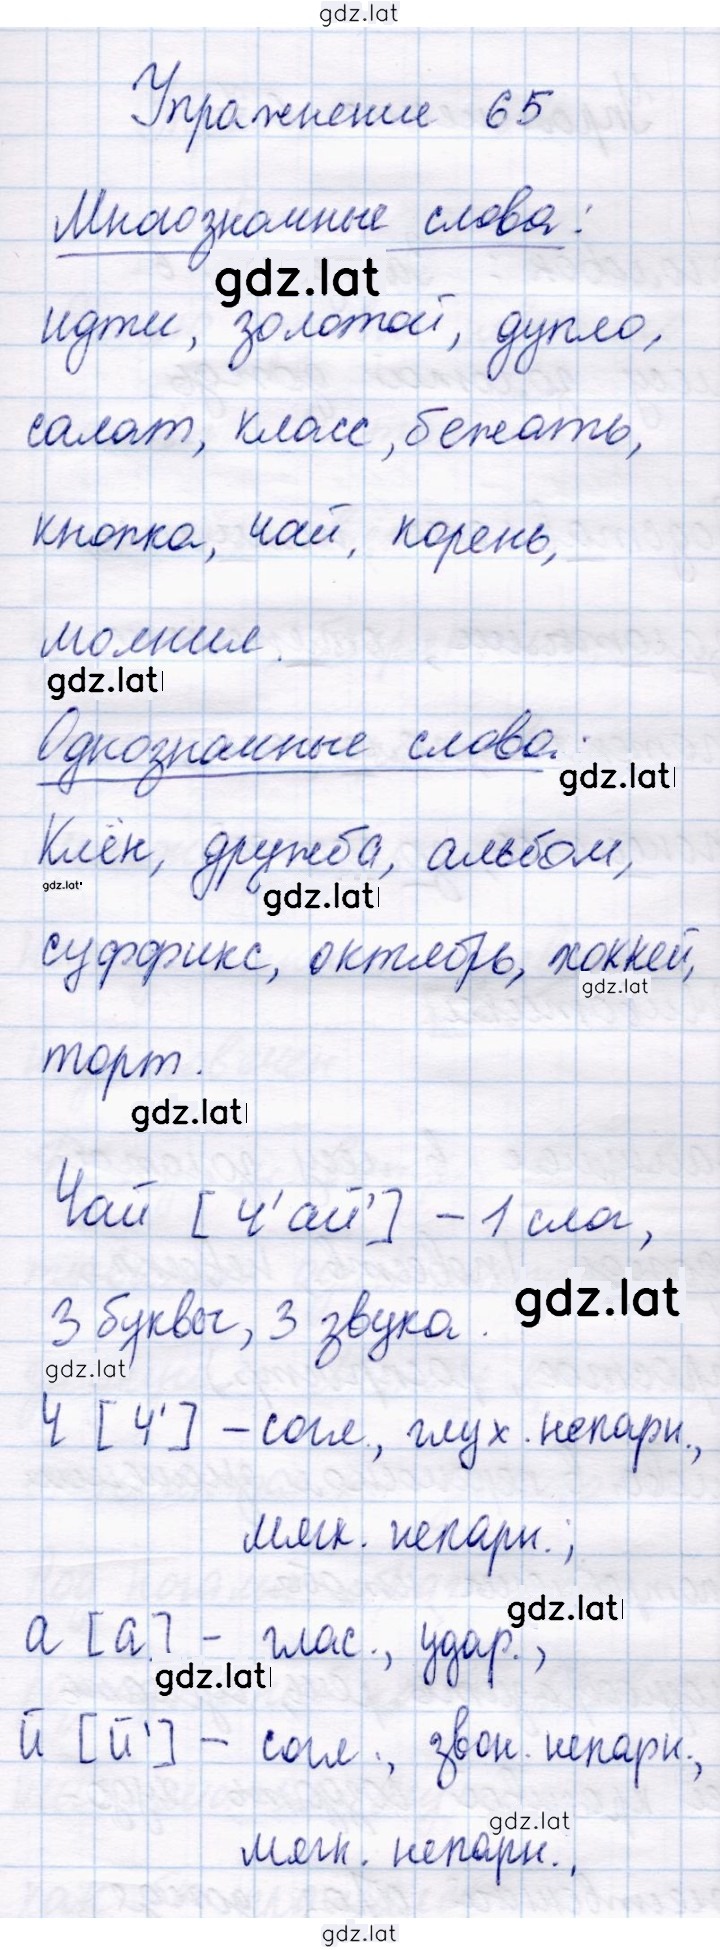 gdz.lat
Упражнение 65
Многозначные слова:
gdz.lat
идти, золотой, дупло,
салат, класс, бежать,
кнопка, чай, корень,
молния.
gdz.lat
Однозначные слова:
gdz.lat
Клён, дружба, альбом,
gdz.lat
gdz.lat
суффикс, октябрь, хоккей,
gdz.lat
торт.
gdz.lat
Чай [ч'ай'] – 1 слог,
gdz.lat
3 буквы, 3 звука.
gdz.lat
ч [ч'] – согл., глух. непарн.,
мягк. непарн.;
gdz.lat
а [а] – глас., удар.,
gdz.lat
й [й'] – согл., звон. непарн.,
gdz.lat
мягк. непарн.,
gdz.lat